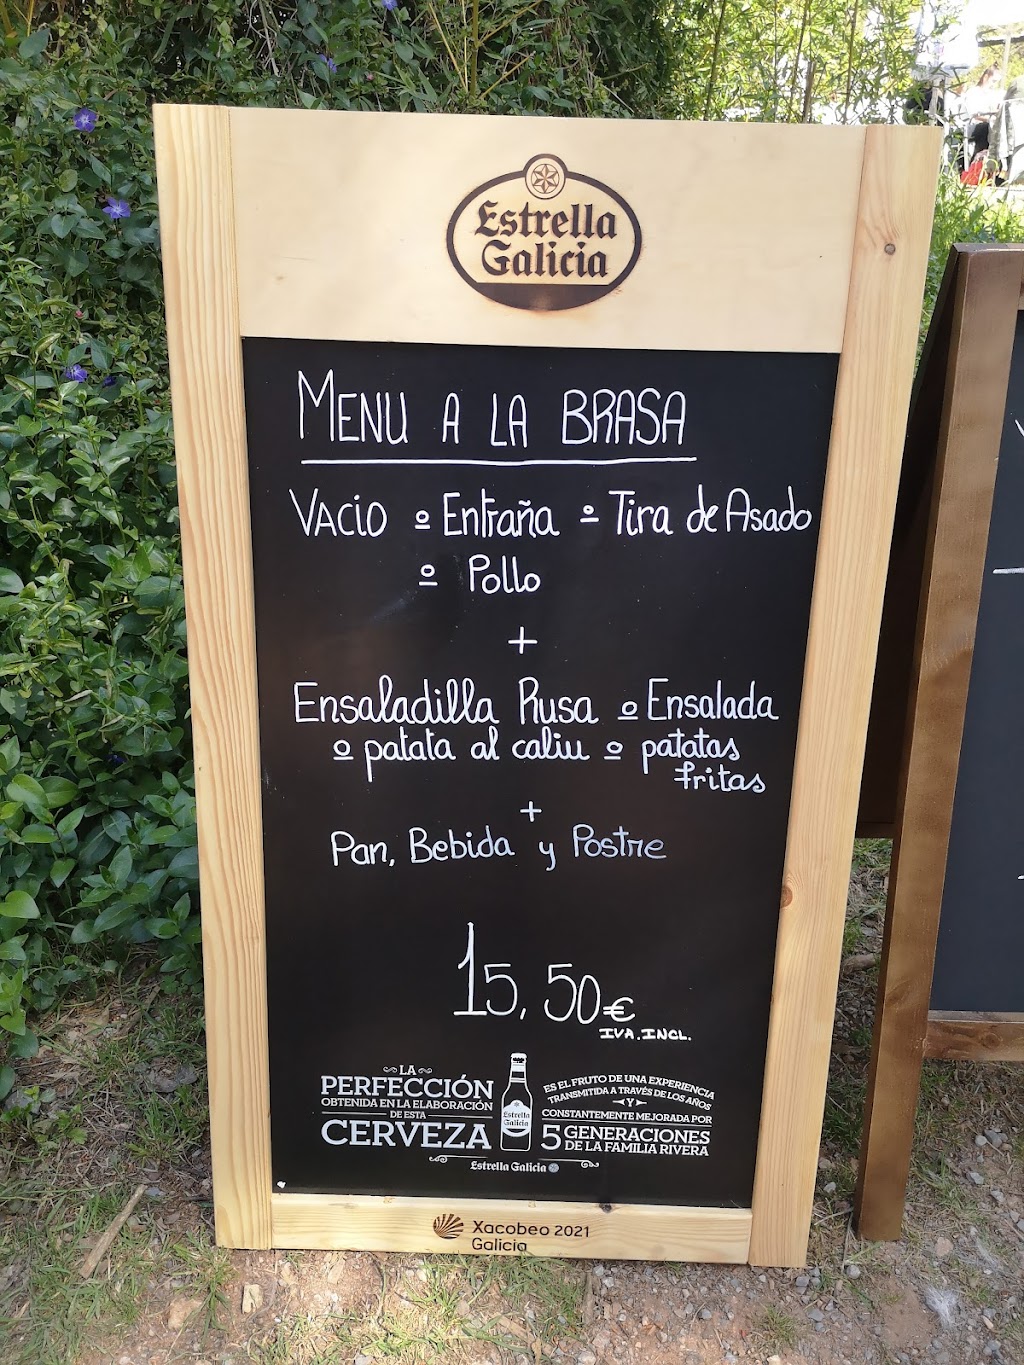 Estrella
Galicia
MENU A LA BRASA
VACIO o Entraña o Tira de Asado
o Pollo
+
Ensaladilla Rusa o Ensalada
o patata al caliu o patatas
fritas
+
Pan, Bebida y Postre
15,50€
IVA.INCL.
LA
PERFECCIÓN
OBTENIDA EN LA ELABORACIÓN
DE ESTA
CERVEZA
Estrella
Galicia
ES EL FRUTO DE UNA EXPERIENCIA
TRANSMITIDA A TRAVÉS DE LOS AÑOS
Y
CONSTANTEMENTE MEJORADA POR
5 GENERACIONES
DE LA FAMILIA RIVERA
Estrella Galicia
Xacobeo 2021
Galicia